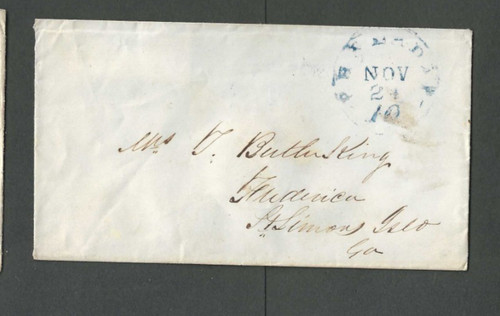 NOV
24
10
Mrs T. Butler King
Frederica
St Simons Isld
Ga